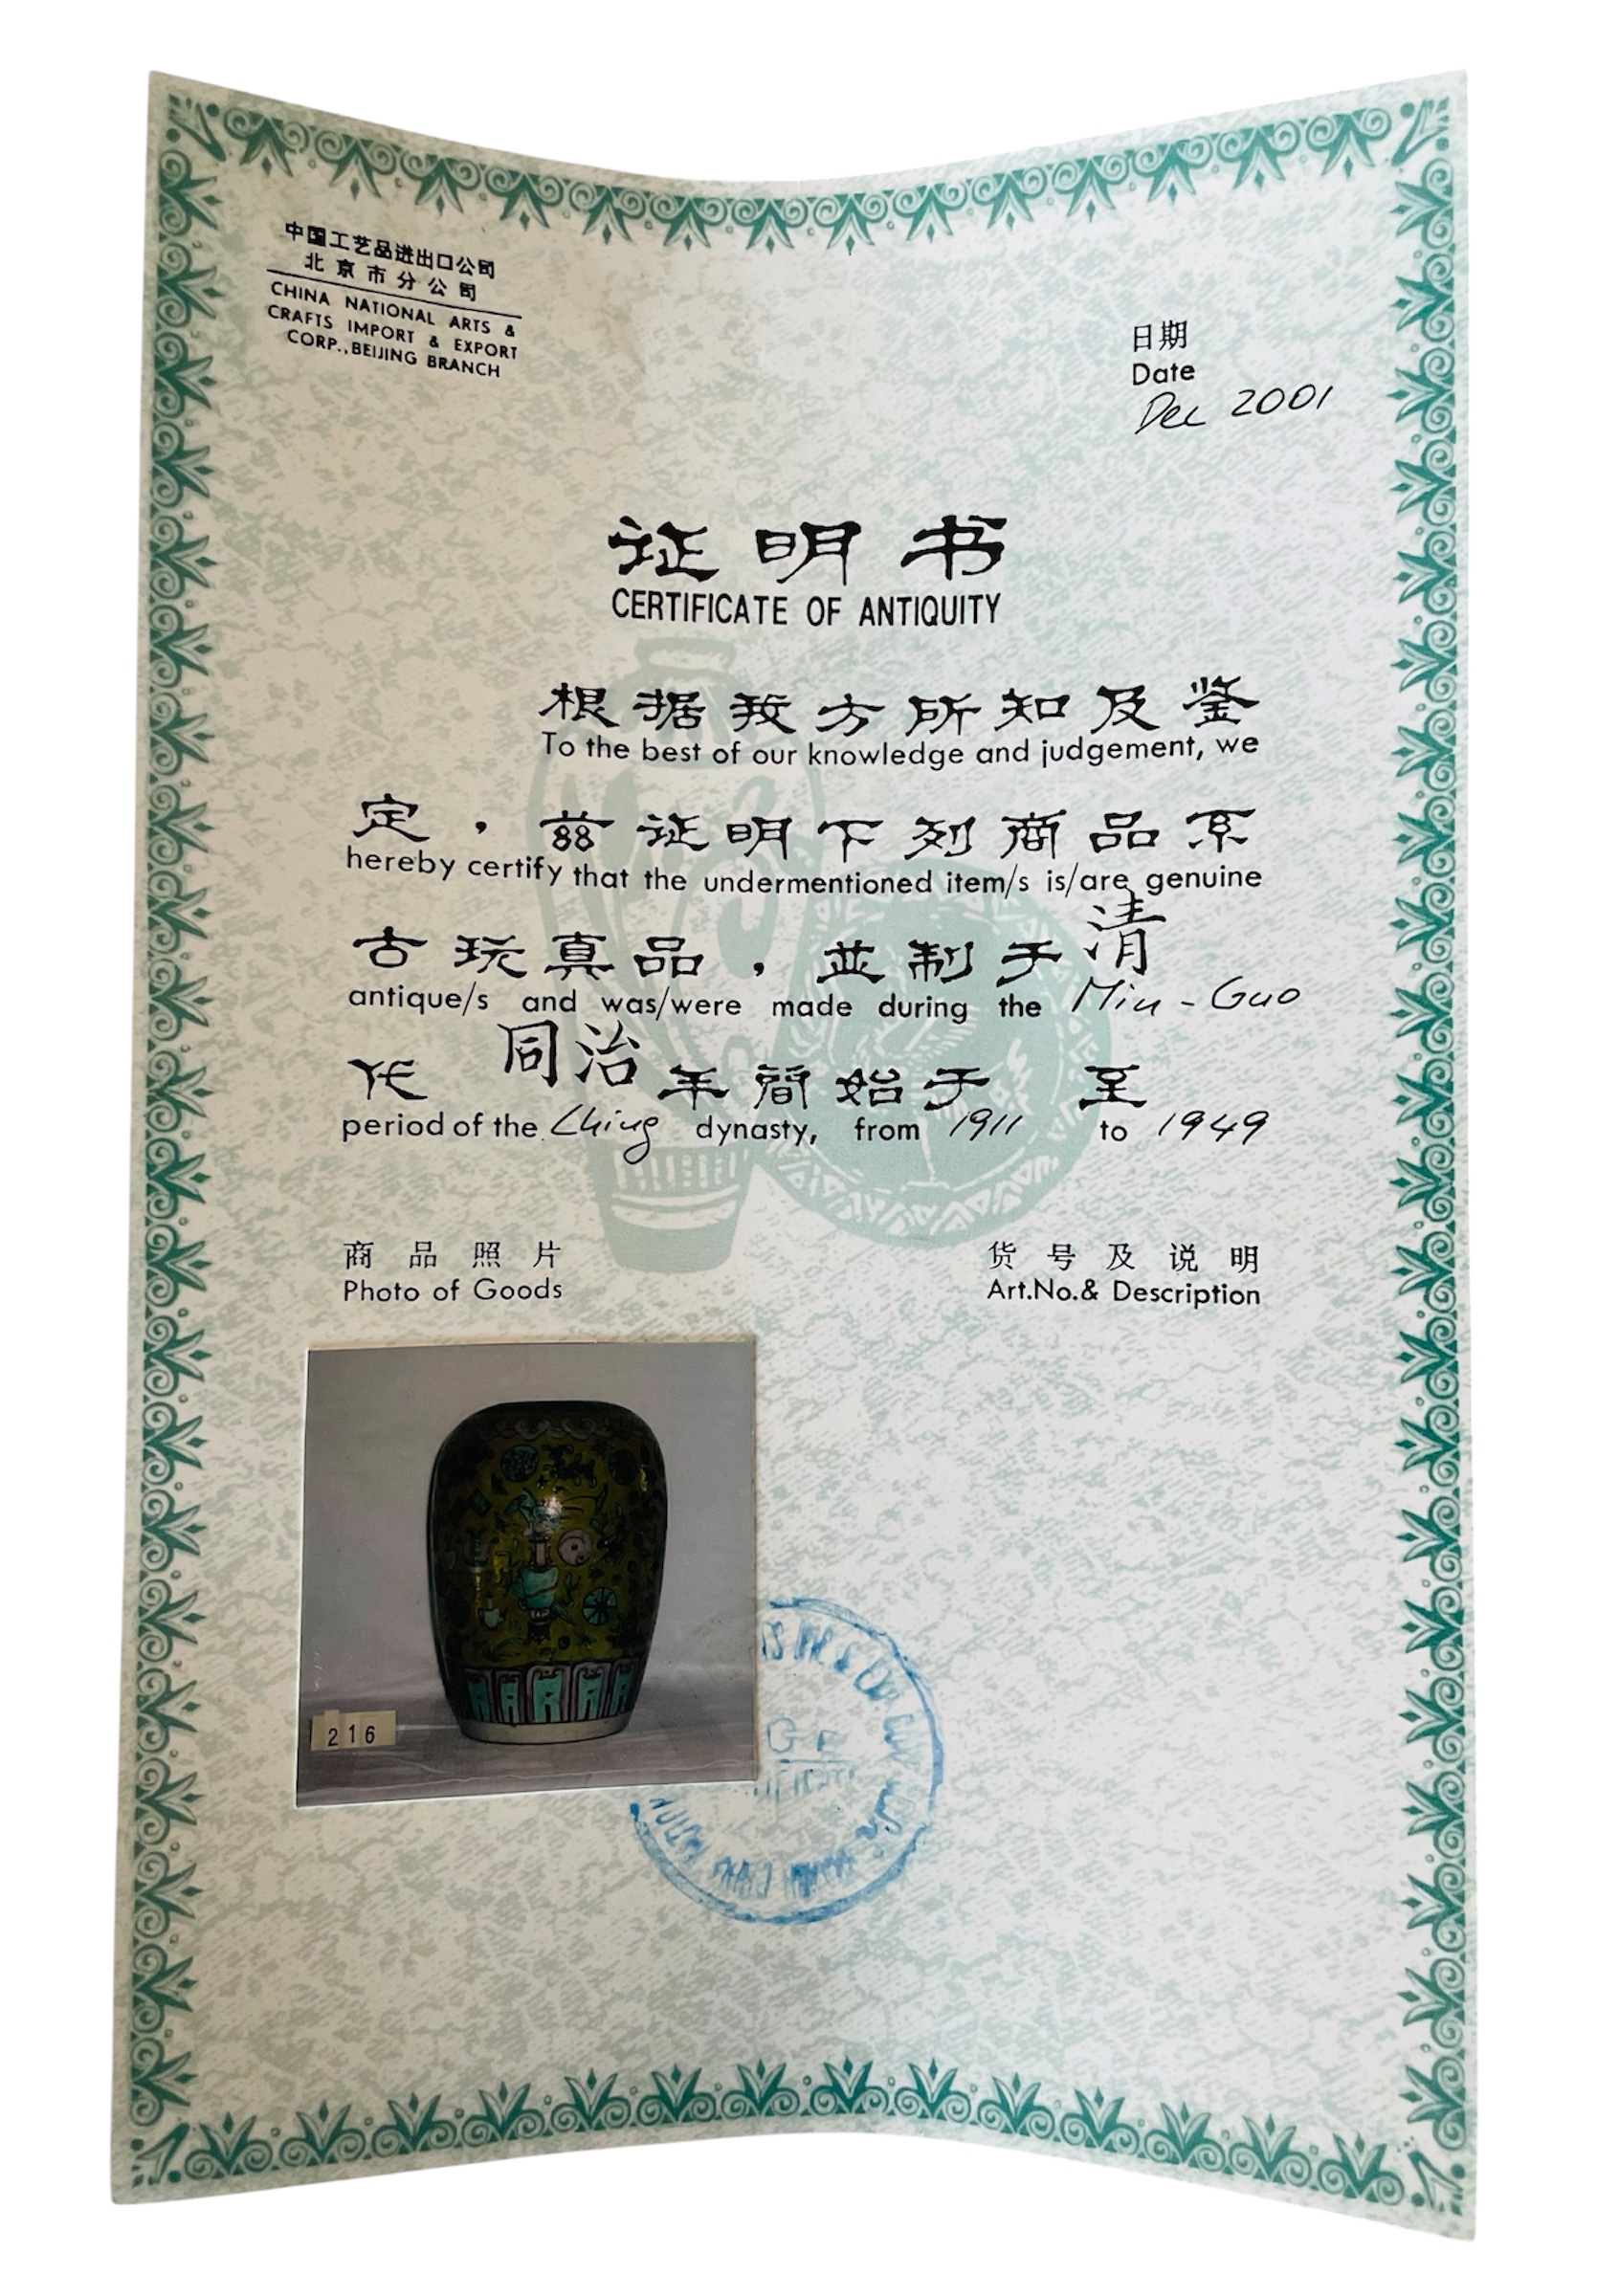 中国工艺品进出口公司
北京市分公司
CHINA NATIONAL ARTS &
CRAFTS IMPORT & EXPORT
CORP., BEIJING BRANCH
日期
Date
Dec 2001
证明书
CERTIFICATE OF ANTIQUITY
根据我方所知及鉴
To the best of our knowledge and judgement, we
定，兹证明下列商品系
hereby certify that the undermentioned item/s is/are genuine
古玩真品，並制于清
antique/s and was/were made during the Min-Guo
代 同治年簡始于 至
period of the Ching dynasty, from 1911 to 1949
商品照片
Photo of Goods
货号及说明
Art.No.& Description
216